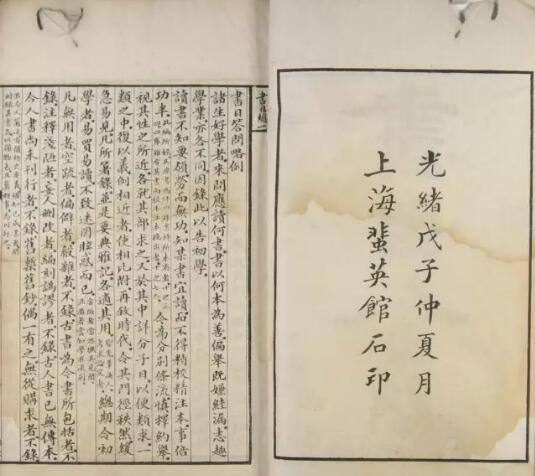 光緒戊子仲夏月
上海蜚英館石印
書目答問略例
諸生好學者來問應讀何書書以何本為善偏舉既嫌絓漏志趣
學業亦各不同因錄此以告初學
讀書不知要領勞而無功知某書宜讀而不得精校精注本事倍
功半今為分別條流慎擇約舉
視其性之所近各就其部求之又於其中詳分子目以便類求一
類之中復以義例相近者使相比附再敘時代令其門徑秩然緩
急易見凡所著錄並是要典雅記各適其用總期令初
學者易買易讀不致迷罔眩惑而已
凡無用者空疏者偏僻者殽雜者不錄古書為今書所包括者不
錄注釋淺陋者妄人刪改者編刻譌謬者不錄古人書已無傳本
今人書尚未刊行者不錄舊槧舊鈔偶一有之無從購求者不錄